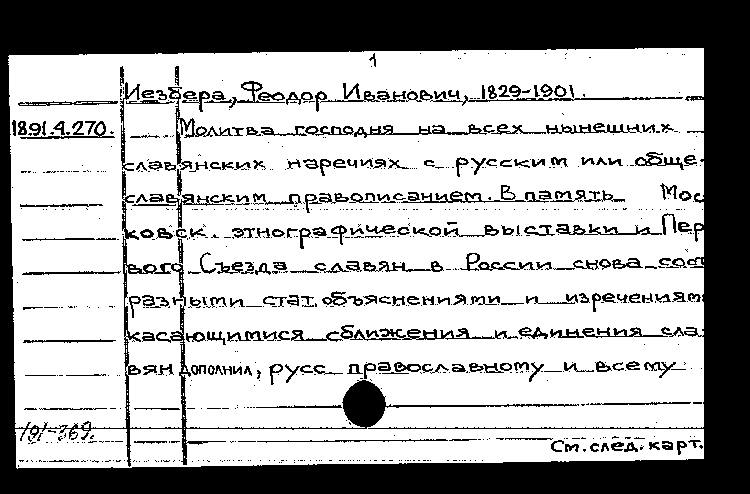 1
Иезбера, Феодор Иванович, 1829-1901.
1891.4.270. Молитва господня на всех нынешних
славянских наречиях с русским или обще-
славянским правописанием. В память Мос
ковск. этнографической выставки и Пер
вого Съезда славян в России снова сост
разными стат. объяснениями и изречениям
касающимися сближения и единения сла
вян дополнил, русс православному и всему
191-369.
См. след. карт.